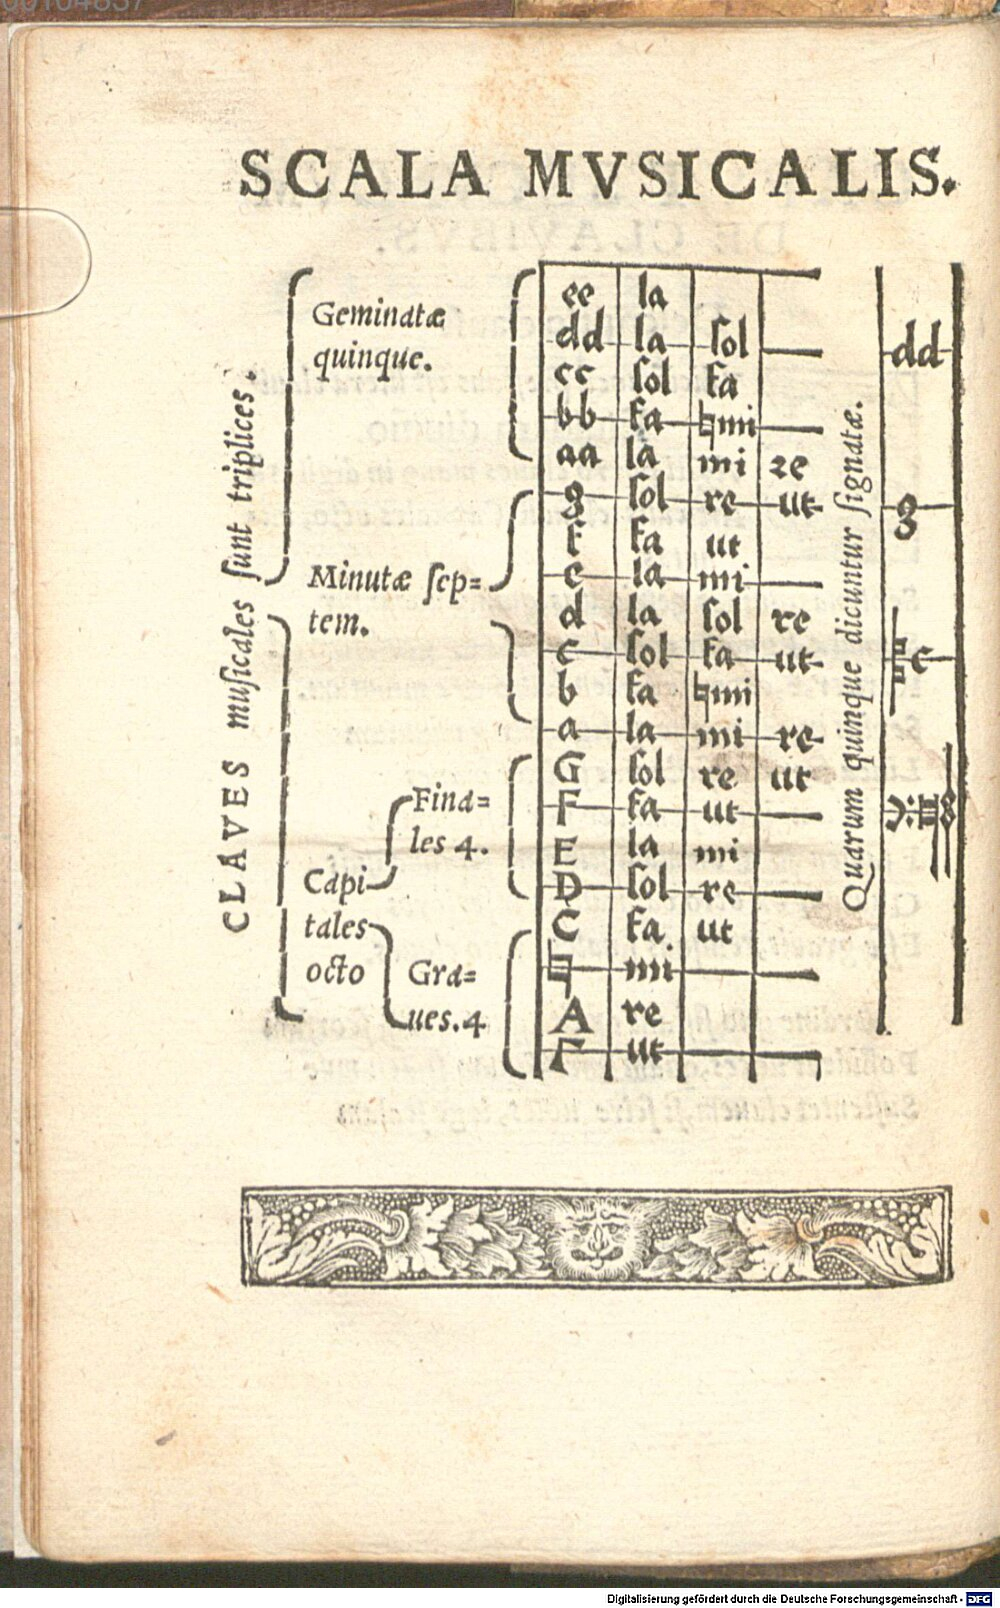 00104837
SCALA MVSICALIS.
CLAVES muſicales ſunt triplices.
Geminatæ
quinque.
Minutæ ſep=
tem.
Capi
tales
octo
Fina=
les 4.
Gra=
ues. 4
ee la
dd la ſol
cc ſol fa
bb fa ♮mi
aa la mi re
g ſol re ut
f fa ut
e la mi
d la ſol re
c ſol fa ut
b fa ♮mi
a la mi re
G ſol re ut
F fa ut
E la mi
D ſol re
C fa ut
♮ mi
A re
Γ ut
Quarum quinque dicuntur ſignatæ.
dd
g
c
Digitalisierung gefördert durch die Deutsche Forschungsgemeinschaft - DFG